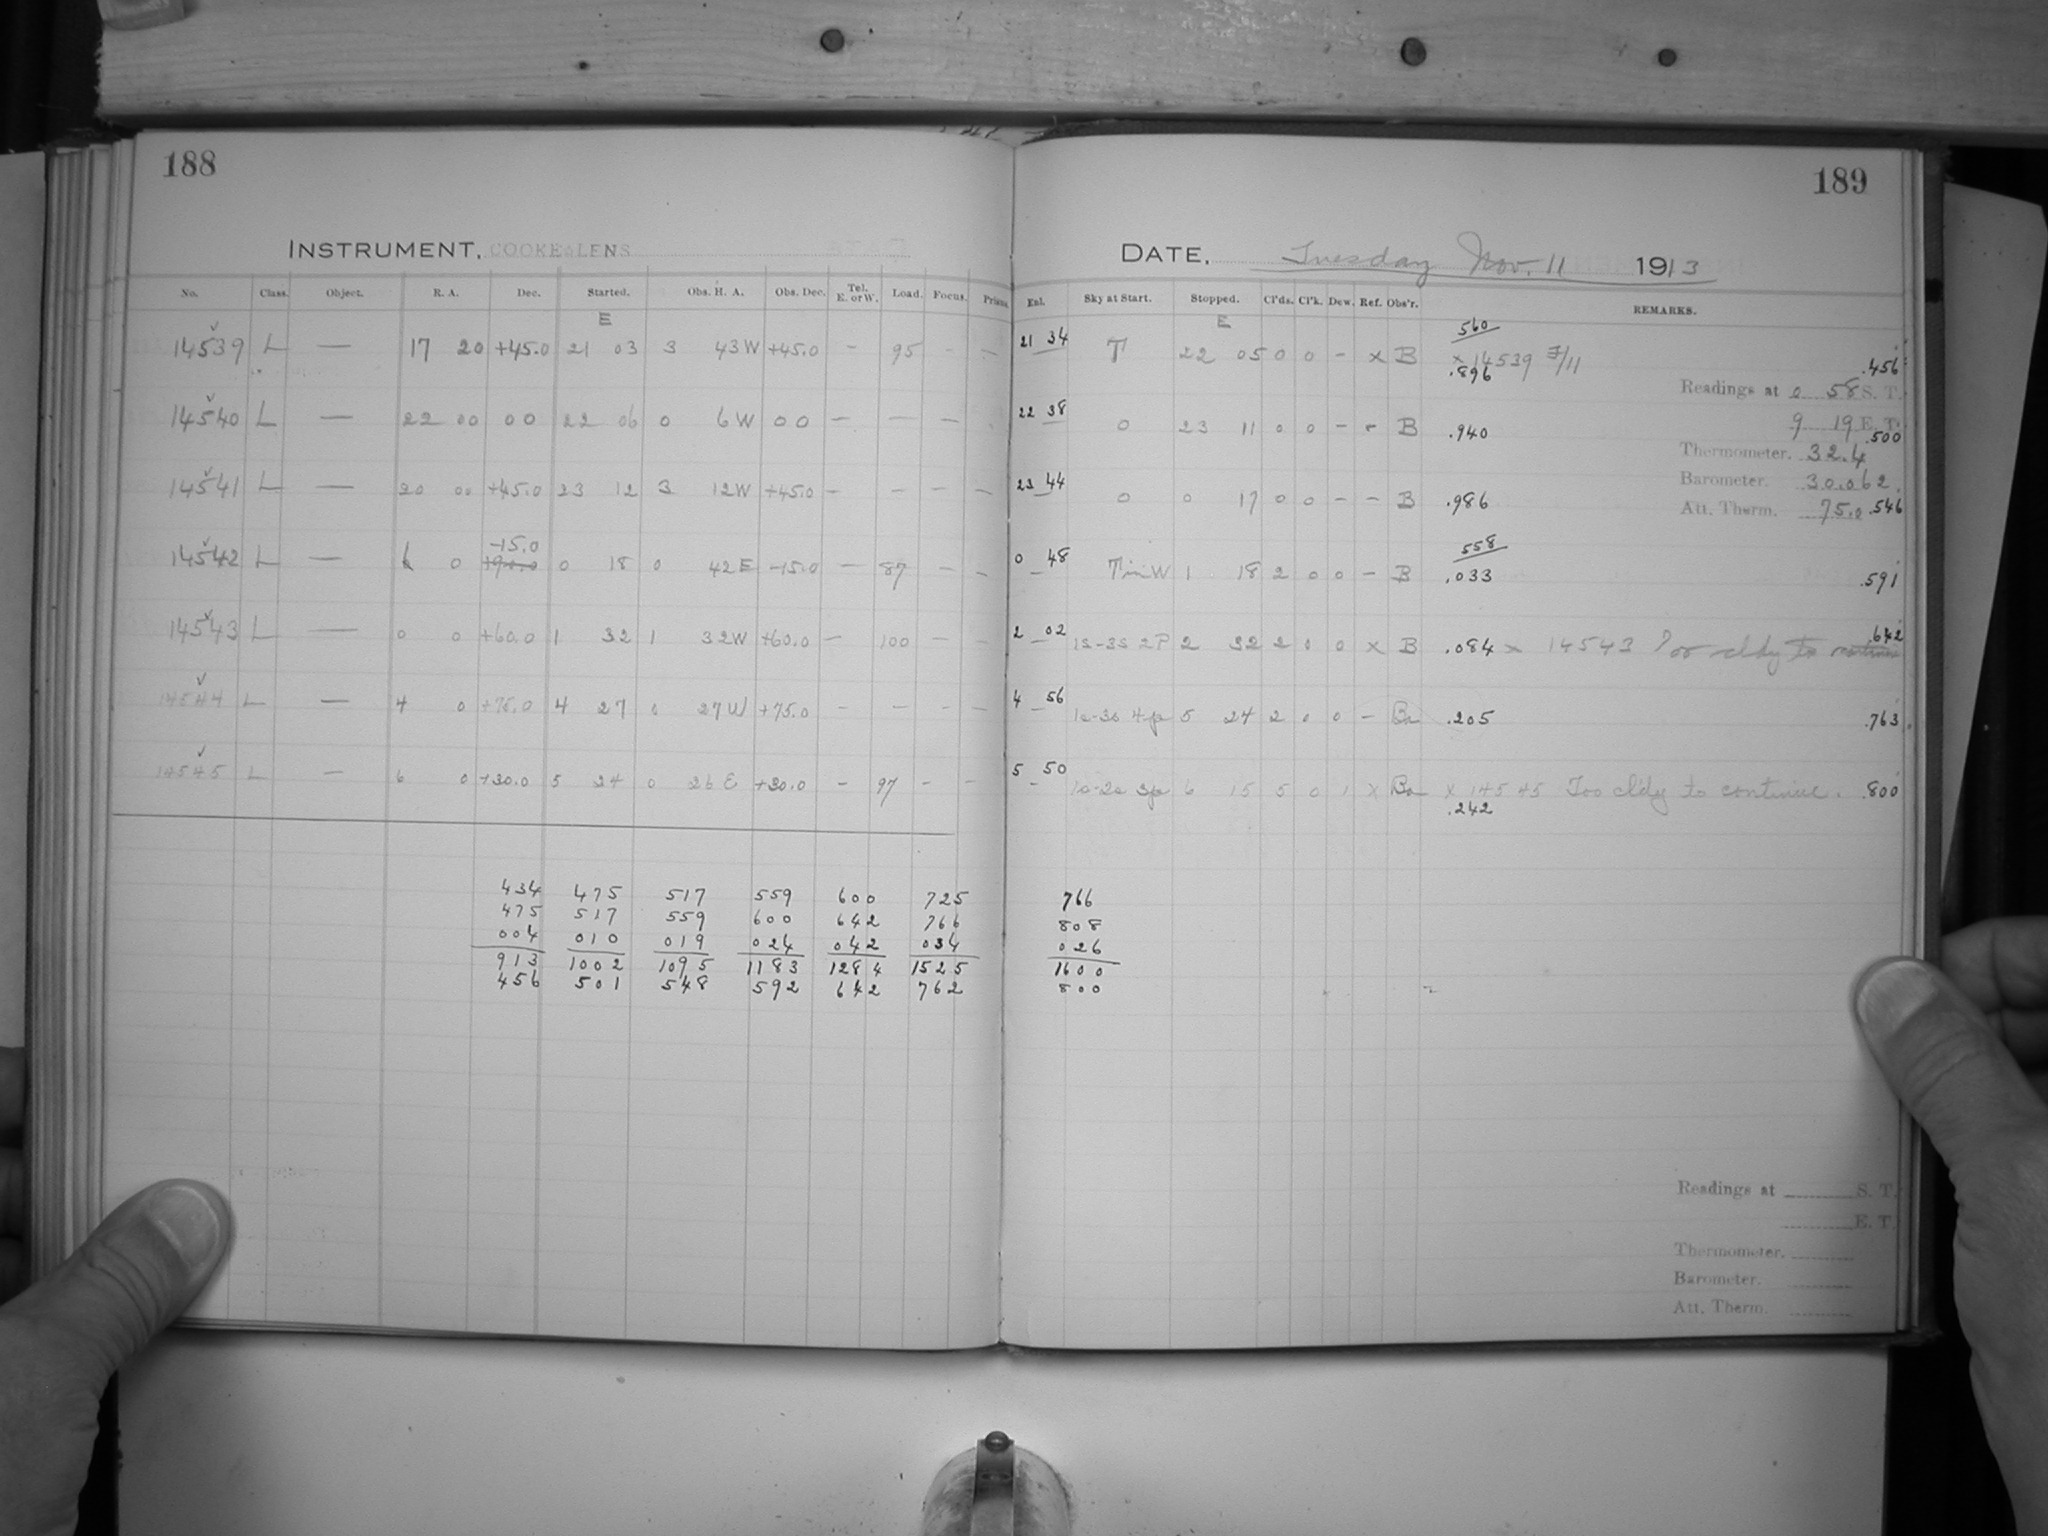 188
INSTRUMENT, COOKE LENS
No. Class. Object. R. A. Dec. Started. Obs. H. A. Obs. Dec. Tel. E. or W. Load. Focus. Prism.
E
14539 L — 17 20 +45.0 21 03 3 43 W +45.0 - 95 - -
14540 L — 22 00 00 22 06 0 6 W 00 — — —
14541 L — 20 00 +45.0 23 12 3 12 W +45.0 — — — —
-15.0
14542 L — 0 +90.0 0 18 0 42 E -15.0 — 87 - -
14543 L — 0 0 +60.0 1 32 1 32 W +60.0 — 100 - -
14544 L — 4 0 +75.0 4 27 0 27 W +75.0 - - - -
14545 L — 6 0 +30.0 5 24 0 26 E +30.0 - 97 - -
434 475 517 559 600 725
475 517 559 600 642 766
004 010 019 024 042 034
913 1002 1095 1183 1284 1525
456 501 548 592 642 762
189
DATE, Tuesday Nov. 11 1913
Enl. Sky at Start. Stopped. Cl'ds. Cl'k. Dew. Ref. Obs'r. REMARKS.
E
560
21 34 T 22 05 0 0 - x B x 14539 F/11 .456
.896
Readings at 0 58 S. T.
22 38 0 23 11 0 0 - - B .940
9 19 E. T.
.500
Thermometer. 32.4
Barometer. 30.062
23 44 0 0 17 0 0 - - B .986
Att. Therm. 75.0 .546
558
0 48 T in W 1 18 2 0 0 - B .033 .591
2 02 1s-3s 2P 2 32 2 0 0 x B .084 x 14543 Too cldy to continue .642
4 56 1s-3s 4p 5 24 2 0 0 - Bn .205 .763
5 50 1s-2s 3p 6 15 5 0 1 x Bn x 14545 Too cl'dy to continue. .800
.242
766
808
026
1600
800
Readings at S. T.
E. T.
Thermometer.
Barometer.
Att. Therm.